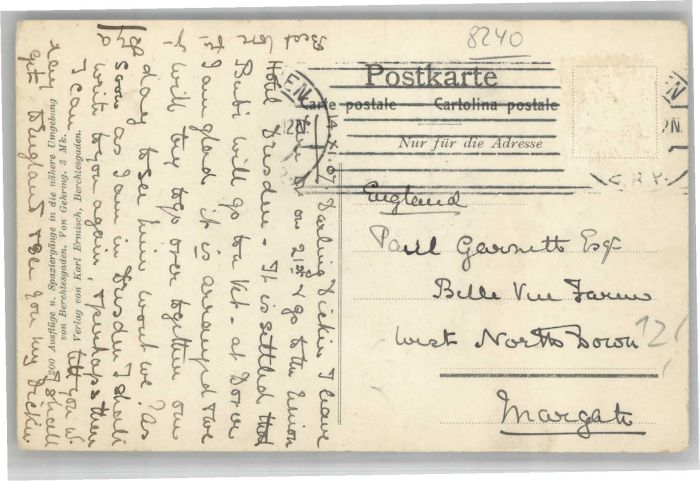 8240
Postkarte
Carte postale Cartolina postale
Nur für die Adresse
4.X.07
12N.
England
Paul Garnett Esqr
Belle Vue Farm
West North Down
Margate
Darling Dickin I leave
on 21st & go to the Union
Hotel Dresden - It is settled that
Bubi will go to a Vet - at Dover
I am glad it is arranged & we
will try to go over together one
day to see him won't we? As
soon as I am in Dresden I shall
write to you again, & perhaps then
I can tell you
I shall
get England & see you my Dickin
200 Ausflüge u. Spaziergänge in die nähere Umgebung
von Berchtesgaden. Von Gehring. 3 Mk.
Verlag von Karl Ermisch, Berchtesgaden.